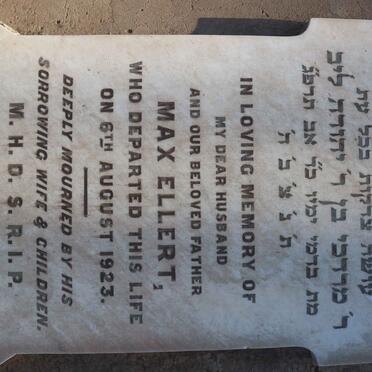 עושה צדקות בכל עת
ר' מרדכי בן ר' יהודה לייב
מת בדמי ימיו כ"ד אב תרפ"ג
ת נ צ ב ה
IN LOVING MEMORY OF
MY DEAR HUSBAND
AND OUR BELOVED FATHER
MAX ELLERT,
WHO DEPARTED THIS LIFE
ON 6TH AUGUST 1923.
DEEPLY MOURNED BY HIS
SORROWING WIFE & CHILDREN.
M. H. D. S. R. I. P.